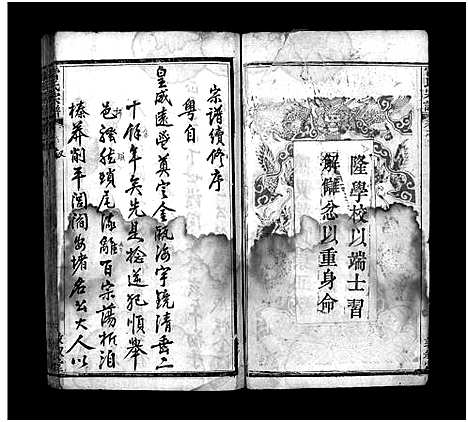 隆學校以端士習
解讎忿以重身命
宗譜續修序
粵自
皇威遠鬯奠定金甌海宇鏡清垂二
十餘年矣先是捻逆犯順舉
邑騷然瑣尾流離百宗蕩析洎
榛莽削平閭閻安堵名公大人以